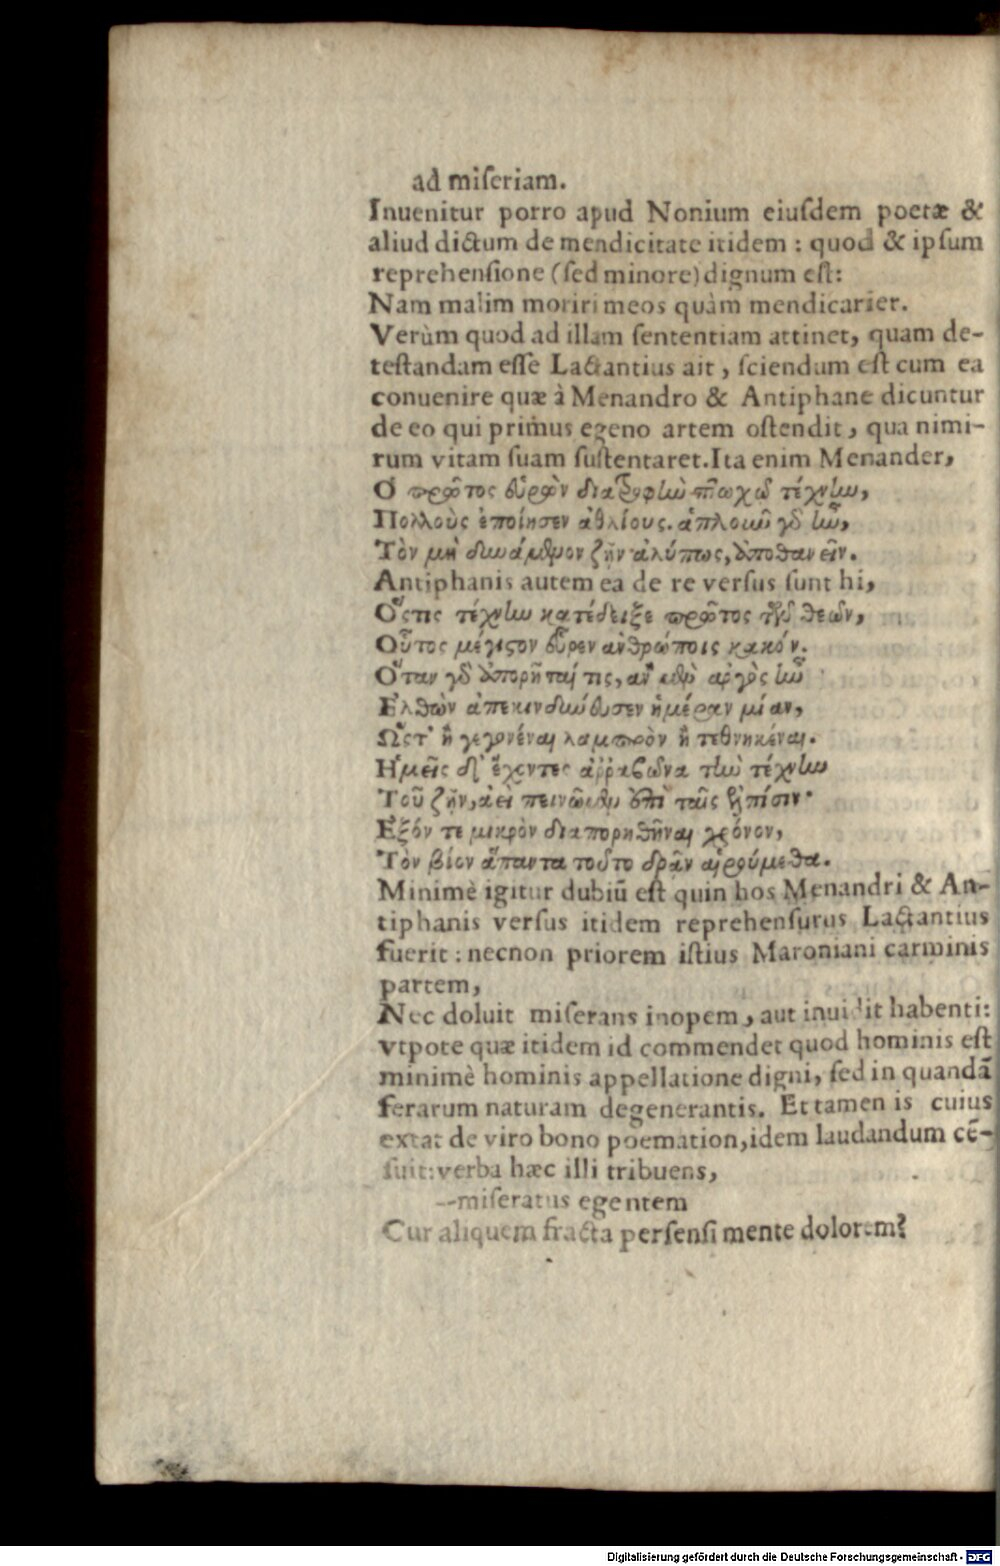 ad miſeriam.
Inuenitur porro apud Nonium eiuſdem poetæ &
aliud dictum de mendicitate itidem : quod & ipſum
reprehenſione (ſed minore) dignum eſt:
Nam malim moriri meos quàm mendicarier.
Verùm quod ad illam ſententiam attinet, quam de-
teſtandam eſſe Lactantius ait, ſciendum eſt cum ea
conuenire quæ à Menandro & Antiphane dicuntur
de eo qui primus egeno artem oſtendit, qua nimi-
rum vitam ſuam ſuſtentaret. Ita enim Menander,
Ὁ πρῶτος εὑρὼν διατροφὴν πτωχῷ τέχνην,
Πολλοὺς ἐποίησεν ἀθλίους. ἁπλοῦν γὰρ ἦν,
Τὸν μὴ δυνάμενον ζῆν ἀλύπως, ἀποθανεῖν.
Antiphanis autem ea de re verſus ſunt hi,
Ὅςτις τέχνην κατέδειξε πρῶτος τῶν θεῶν,
Οὗτος μέγιστον εὗρεν ἀνθρώποις κακόν.
Ὅταν γὰρ ἀπορῆταί τις, ἂν μὲν ἀργὸς ἦν
Ελθὼν ἀπεκινδύνευσεν ἡμέραν μίαν,
Ὥςτ' ἢ γεγονέναι λαμπρὸν ἢ τεθνηκέναι.
Ἡμεῖς δ' ἔχοντες ἀρραβῶνα τὴν τέχνην
Τοῦ ζῆν, ἀεὶ πεινῶμεν ἐπὶ ταῖς ἐλπίσιν·
Εξόν τε μικρὸν διαπορηθῆναι χρόνον,
Τὸν βίον ἅπαντα τοῦτο δρᾶν αἱρούμεθα.
Minimè igitur dubiū eſt quin hos Menandri & An-
tiphanis verſus itidem reprehenſurus Lactantius
fuerit : necnon priorem iſtius Maroniani carminis
partem,
Nec doluit miſerans inopem, aut inuidit habenti:
vtpote quæ itidem id commendet quod hominis eſt
minimè hominis appellatione digni, ſed in quandā
ferarum naturam degenerantis. Et tamen is cuius
extat de viro bono poemation, idem laudandum cē-
ſuit: verba hæc illi tribuens,
--miſeratus egentem
Cur aliquem fracta perſenſi mente dolorem?
Digitalisierung gefördert durch die Deutsche Forschungsgemeinschaft - DFG